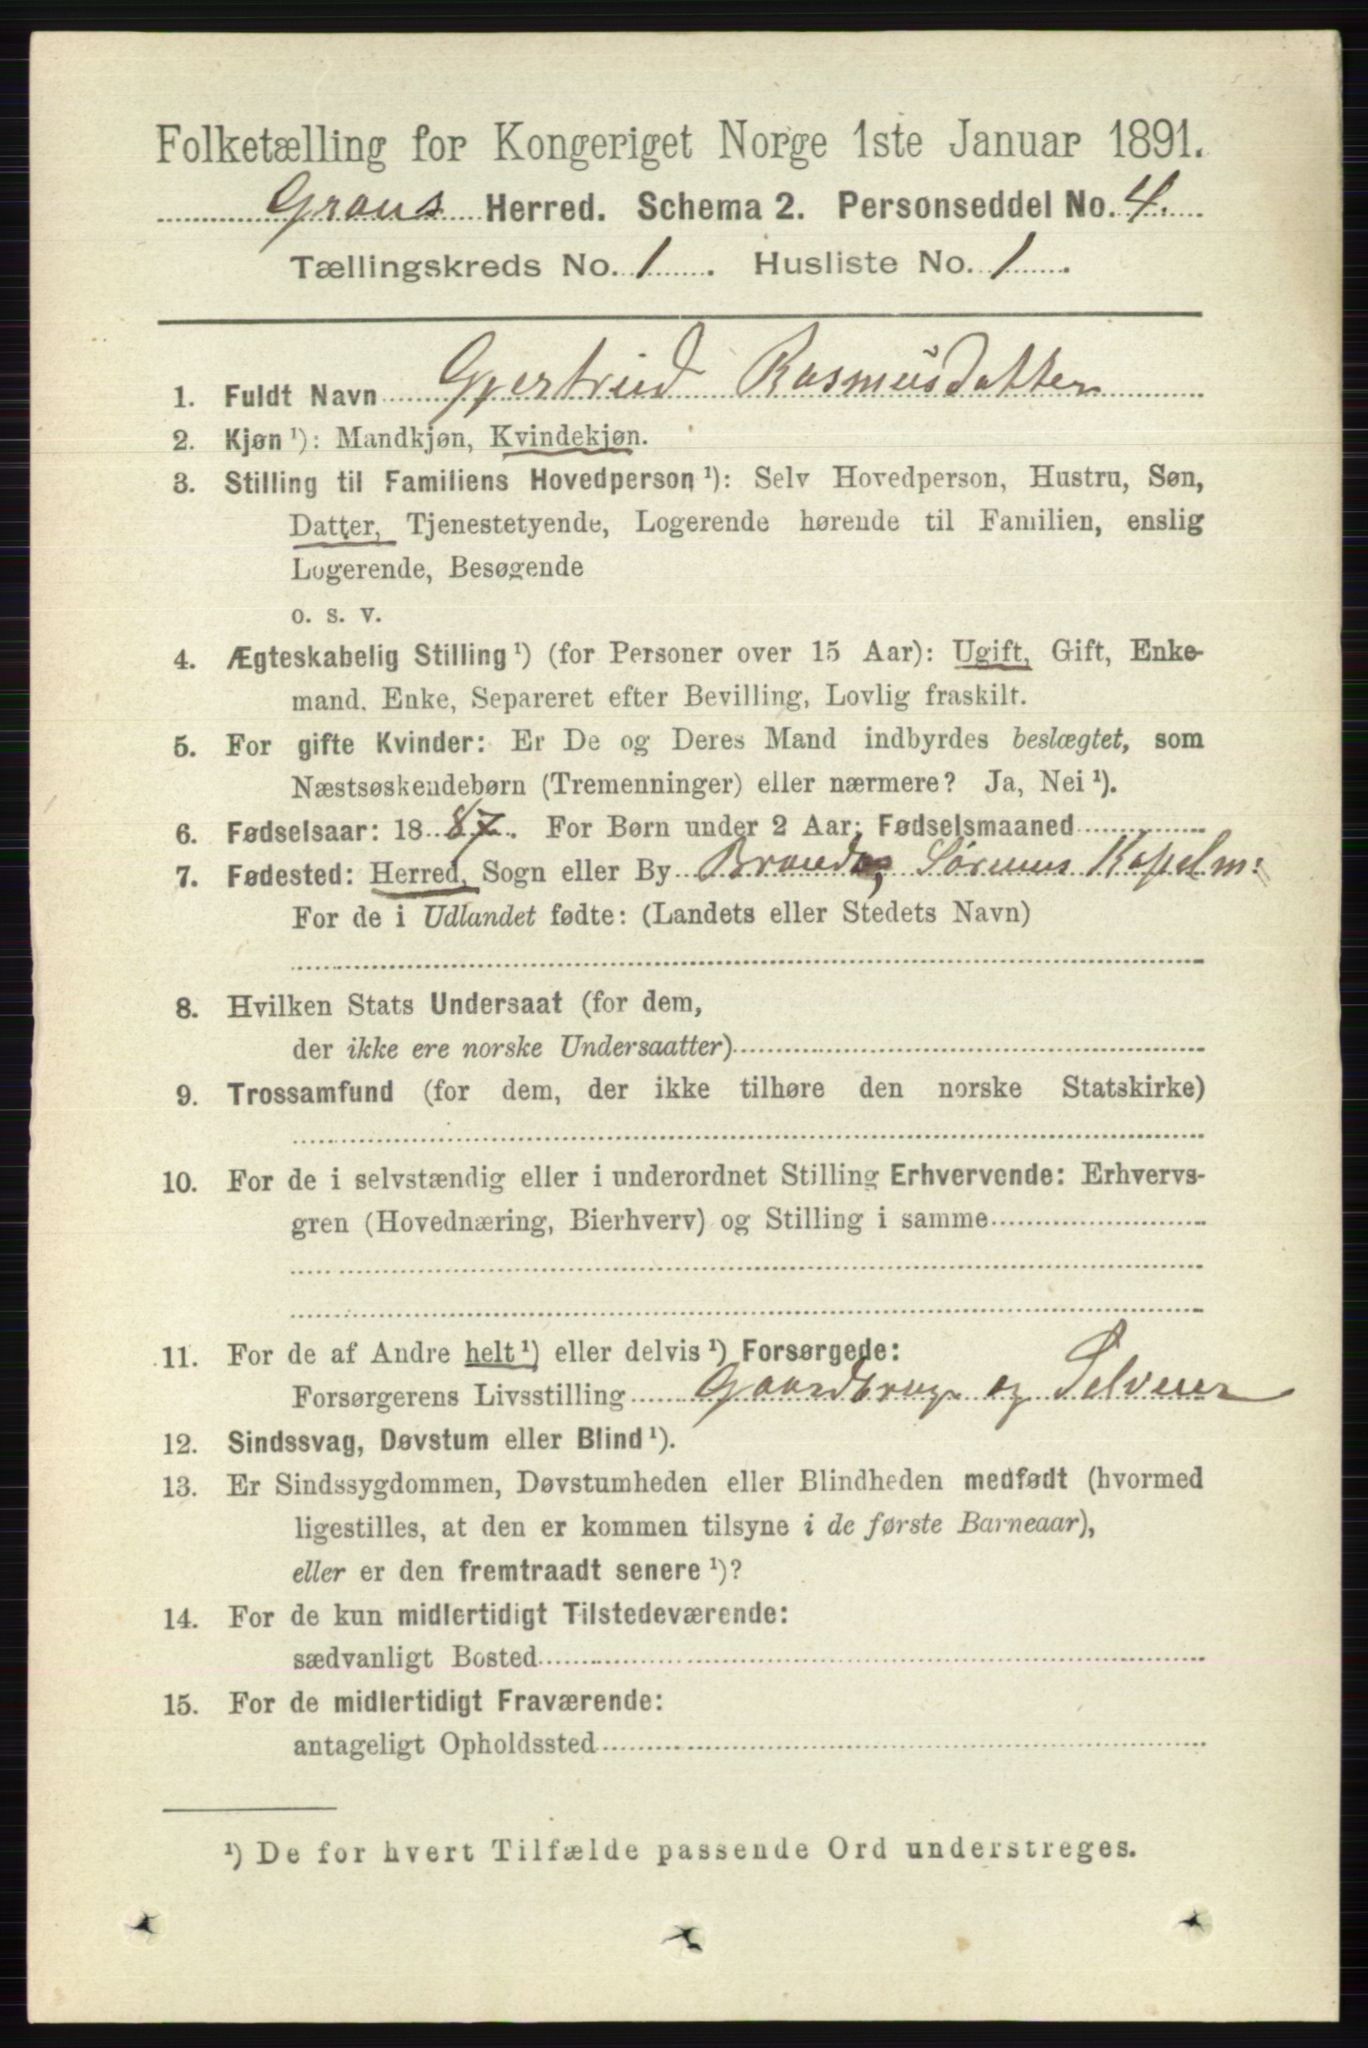 Folketælling for Kongeriget Norge 1ste Januar 1891.
Grans Herred. Schema 2. Personseddel No. 4.
Tællingskreds No. 1. Husliste No. 1.
1. Fuldt Navn Gjertrud Rasmusdatter
2. Kjøn ¹): Mandkjøn, Kvindekjøn.
3. Stilling til Familiens Hovedperson ¹): Selv Hovedperson, Hustru, Søn,
Datter, Tjenestetyende, Logerende hørende til Familien, enslig
Logerende, Besøgende
o. s. v.
4. Ægteskabelig Stilling ¹) (for Personer over 15 Aar): Ugift, Gift, Enke-
mand, Enke, Separeret efter Bevilling, Lovlig fraskilt.
5. For gifte Kvinder: Er De og Deres Mand indbyrdes beslægtet, som
Næstsøskendebørn (Tremenninger) eller nærmere? Ja, Nei ¹).
6. Fødselsaar: 1887. For Børn under 2 Aar: Fødselsmaaned
7. Fødested: Herred, Sogn eller By Brandbo,
For de i Udlandet fødte: (Landets eller Stedets Navn)
8. Hvilken Stats Undersaat (for dem,
der ikke ere norske Undersaatter)
9. Trossamfund (for dem, der ikke tilhøre den norske Statskirke)
10. For de i selvstændig eller i underordnet Stilling Erhvervende: Erhvervs-
gren (Hovednæring, Bierhverv) og Stilling i samme
11. For de af Andre helt ¹) eller delvis ¹) Forsørgede:
Forsørgerens Livsstilling Gaardbruger og Selveier
12. Sindssvag, Døvstum eller Blind ¹).
13. Er Sindssygdommen, Døvstumheden eller Blindheden medfødt (hvormed
ligestilles, at den er kommen tilsyne i de første Barneaar),
eller er den fremtraadt senere ¹)?
14. For de kun midlertidigt Tilstedeværende:
sædvanligt Bosted
15. For de midlertidigt Fraværende:
antageligt Opholdssted
¹) De for hvert Tilfælde passende Ord understreges.